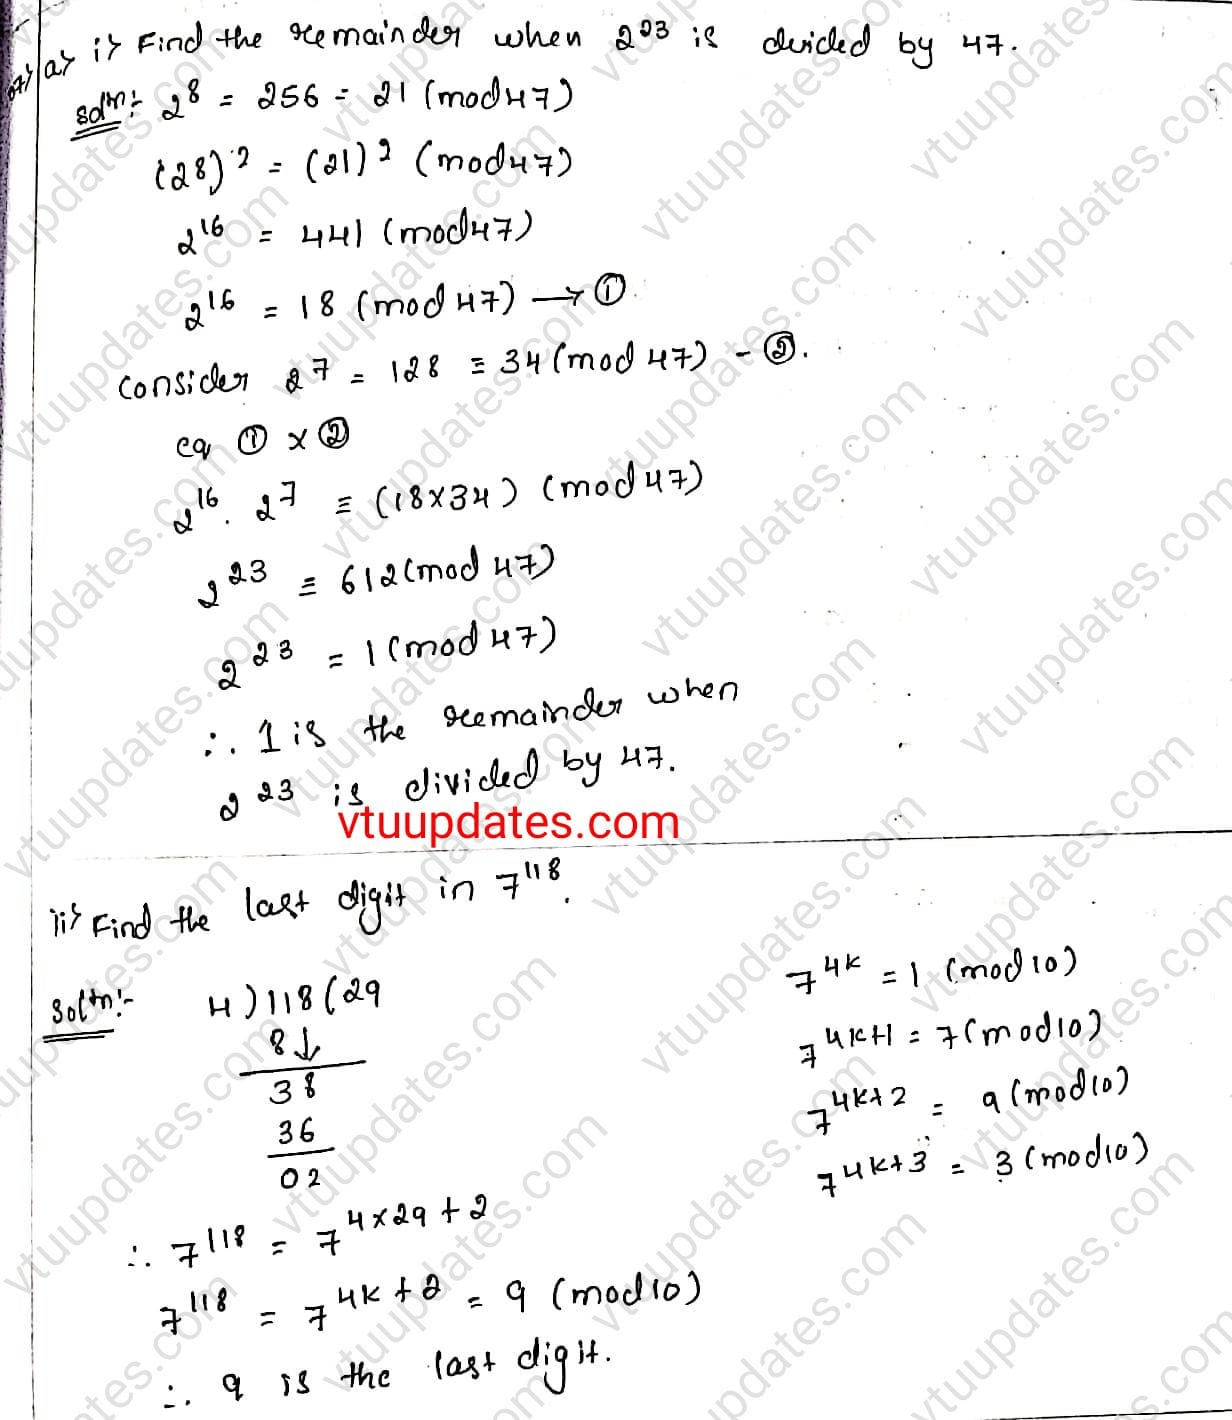 07) a) i) Find the remainder when 2^23 is divided by 47.
Sol^n:- 2^8 = 256 = 21 (mod 47)
(28)^2 = (21)^2 (mod 47)
2^16 = 441 (mod 47)
2^16 = 18 (mod 47) → ①
consider 2^7 = 128 ≡ 34 (mod 47) - ②.
eq ① × ②
2^16 . 2^7 ≡ (18×34) (mod 47)
2^23 ≡ 612 (mod 47)
2^23 = 1 (mod 47)
∴ 1 is the remainder when
2^23 is divided by 47.
vtuupdates.com
ii) Find the last digit in 7^118.
Sol^n:- 4 ) 118 ( 29
8↓
38
36
02
7^4k = 1 (mod 10)
7^4k+1 = 7 (mod 10)
7^4k+2 = 9 (mod 10)
7^4k+3 = 3 (mod 10)
∴ 7^118 = 7^4×29+2
7^118 = 7^4k+2 = 9 (mod 10)
∴ 9 is the last digit.